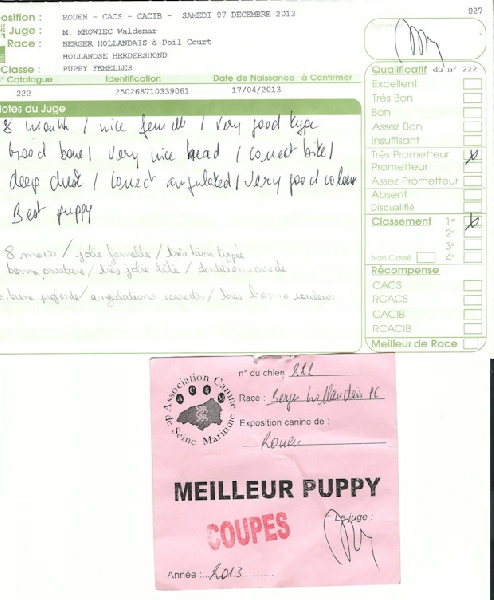 osition : ROUEN - CACS - CACIB - SAMEDI 07 DECEMBRE 2013
027
Juge : M. MROWIEC Waldemar
Race : BERGER HOLLANDAIS à Poil Court
HOLLANDSE HERDERSHOND
Classe : PUPPY FEMELLES
n° Catalogue Identification Date de Naissance à Confirmer
222 250268710339061 17/04/2013
Notes du Juge
8 month / nice female / very good type
good bone / very nice head / correct bite /
deep chest / correct angulated / very good colour
Best puppy
8 mois / jolie femelle / très bien typée
bonne ossature / très jolie tête / dentition correcte
poitrine profonde / angulations correctes / très bonne couleur
Qualificatif du n° 222
Excellent
Très Bon
Bon
Assez Bon
Insuffisant
Très Prometteur X
Prometteur
Assez Prometteur
Absent
Disqualifié
Classement 1er X
2e
3e
Non Classé 4e
Récompense
CACS
RCACS
CACIB
RCACIB
Meilleur de Race
Association Canine de Seine Maritime
n° du chien 222
Race : Berger hollandais PC
Exposition canine de :
Rouen
MEILLEUR PUPPY
COUPES
Le juge :
Année : 2013